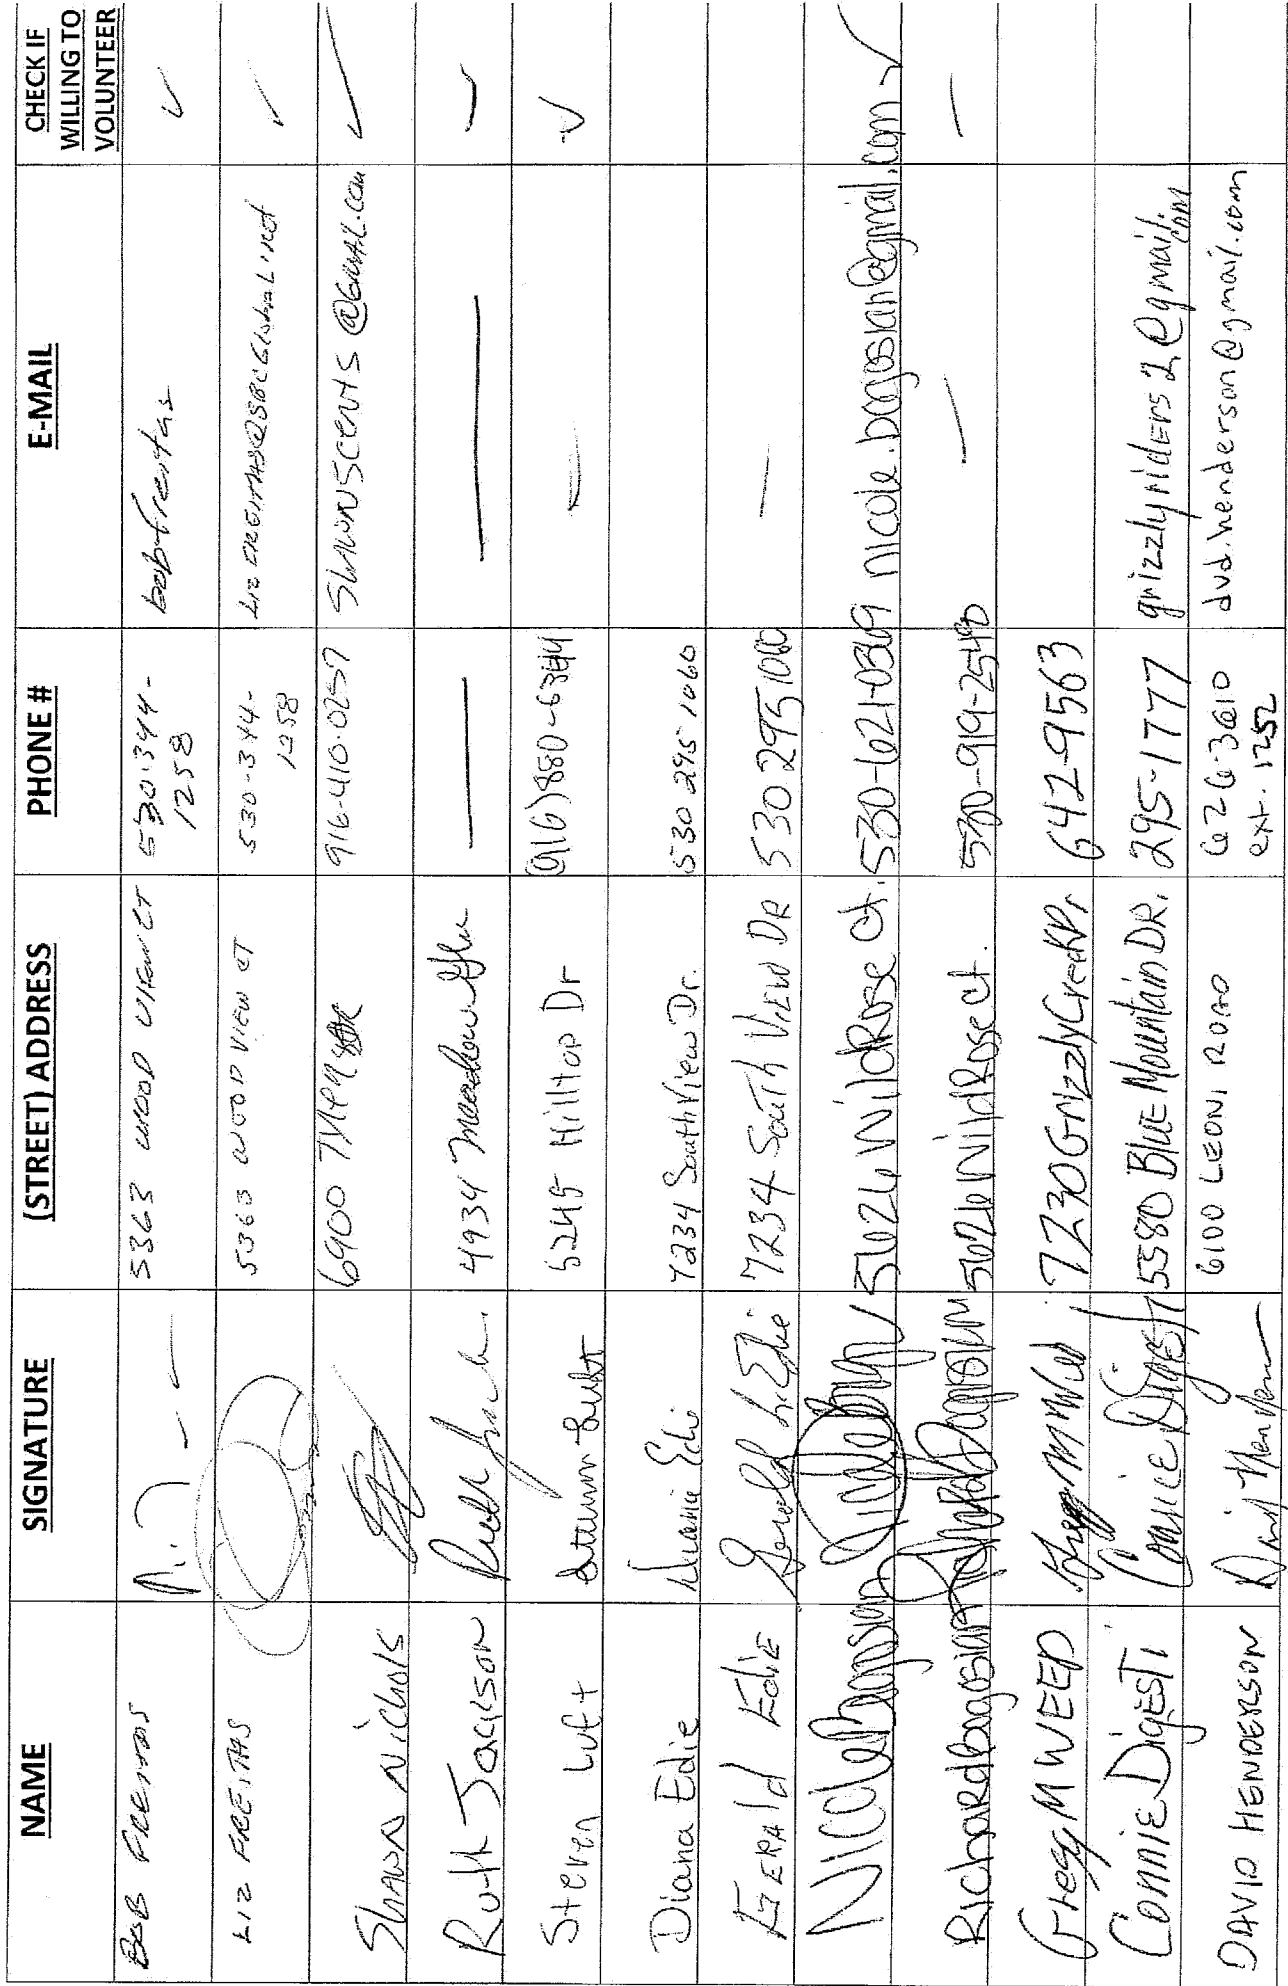 NAME SIGNATURE (STREET) ADDRESS PHONE # E-MAIL CHECK IF
WILLING TO
VOLUNTEER
BOB FREITAS 5363 WOOD VIEW CT 530-344-
1258 bobfreitas ✓
LIZ FREITAS 5363 WOOD VIEW CT 530-344-
1258 LIZFREITAS@SBCGlobal.net ✓
Shawn Nichols 6900 916-410-0257 SHAWNSCENTS@GMAIL.COM ✓
Ruth Jackson 4934 Meadow — — ✓
Steven Luft 5245 Hilltop Dr (916)880-6344 — ✓
Diana Edie Diana Edie 7234 South View Dr. 530 295 1060
GERALD EDIE Gerald L. Edie 7234 South View DR 530 295 1060 —
Nicole Bagosian 5626 Wild Rose Ct. 530-621-0369 nicole.bagosian@gmail.com ✓
Richard Bagosian Richard Bagosian 5626 Wild Rose Ct. 530-919-2540 — —
Gregg M WEED Gregg M Weed 7230 Grizzly Creek Dr. 642-9563
Connie Digesti Connie Digesti 5580 Blue Mountain DR. 295-1777 grizzlyriders2@gmail.
com
DAVID HENDERSON David Henderson 6100 LEONI ROAD 626-3610
ext. 1252 dvd.henderson@gmail.com